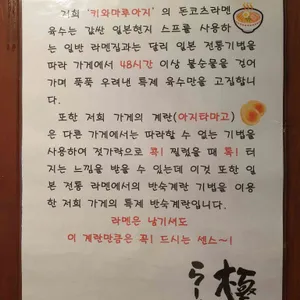 저희 '키와마루아지'의 돈코츠라멘
육수는 값싼 일본현지 스프를 사용하
는 일반 라멘집과는 달리 일본 전통기법을
따라 가게에서 48시간 이상 불순물을 걷어
가며 푹푹 우려낸 특제 육수만을 고집합니
다.
또한 저희 가게의 계란(아지타마고)
은 다른 가게에서는 따라할 수 없는 기법을
사용하여 젓가락으로 콕! 찔렀을 때 톡! 터
지는 느낌을 받을 수 있는데 이것 또한 일
본 전통 라멘에서의 반숙계란 기법을 이용
한 저희 가게의 특제 반숙계란입니다.
라멘은 남기셔도
이 계란만큼은 꼭! 드시는 센스~!
極